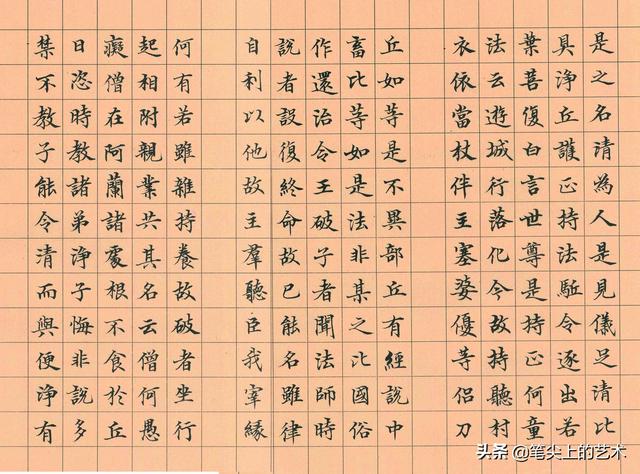 是之名清為人是見儀足清比
具淨丘護正持法駈令逐出若
葉菩復白言世尊是持正何童
法云遊城行落化今故持聽村
衣依當杖伴主塞婆優等侶刀
丘如等是不異部丘有經說中
畜比等如是法非某之比國俗
作還治令王破子者聞法師時
說者設復終命故已能名雖律
自利以他故主羣聽臣我宰緣
何有若雖雜持養故破者坐行
起相附親業共其名云僧何愚
癡僧在阿蘭諸處根不食於丘
日恣時教諸弟淨子悔非說多
禁不教子能令清而與便淨有
头条 @笔尖上的艺术